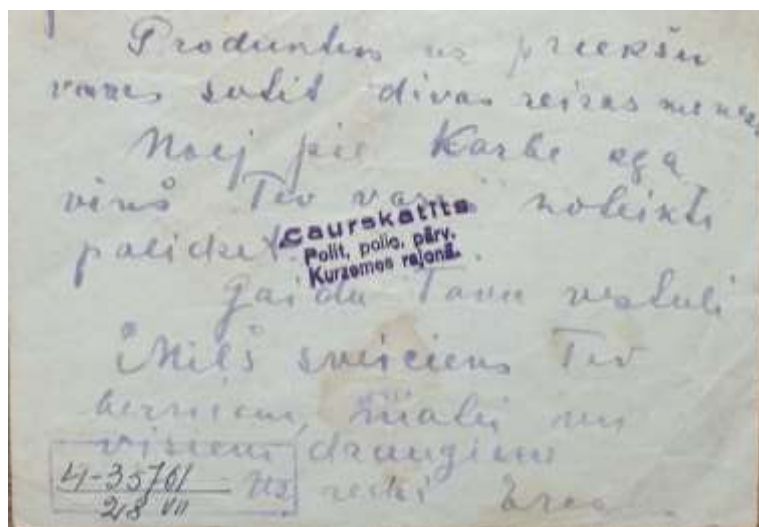 Produktus uz priekšu
vares sutit divas reizas menesi
Noej pie Karbe
vinš Tev var noteikti
palidzet
Caurskatīts
Polit. polic. pārv.
Kurzemes rajonā.
Gaidu Tavu vestuli
Milš sveiciens Tev
berniem, mātei un
visiem draugiem
4-35761
28 VII
Uz